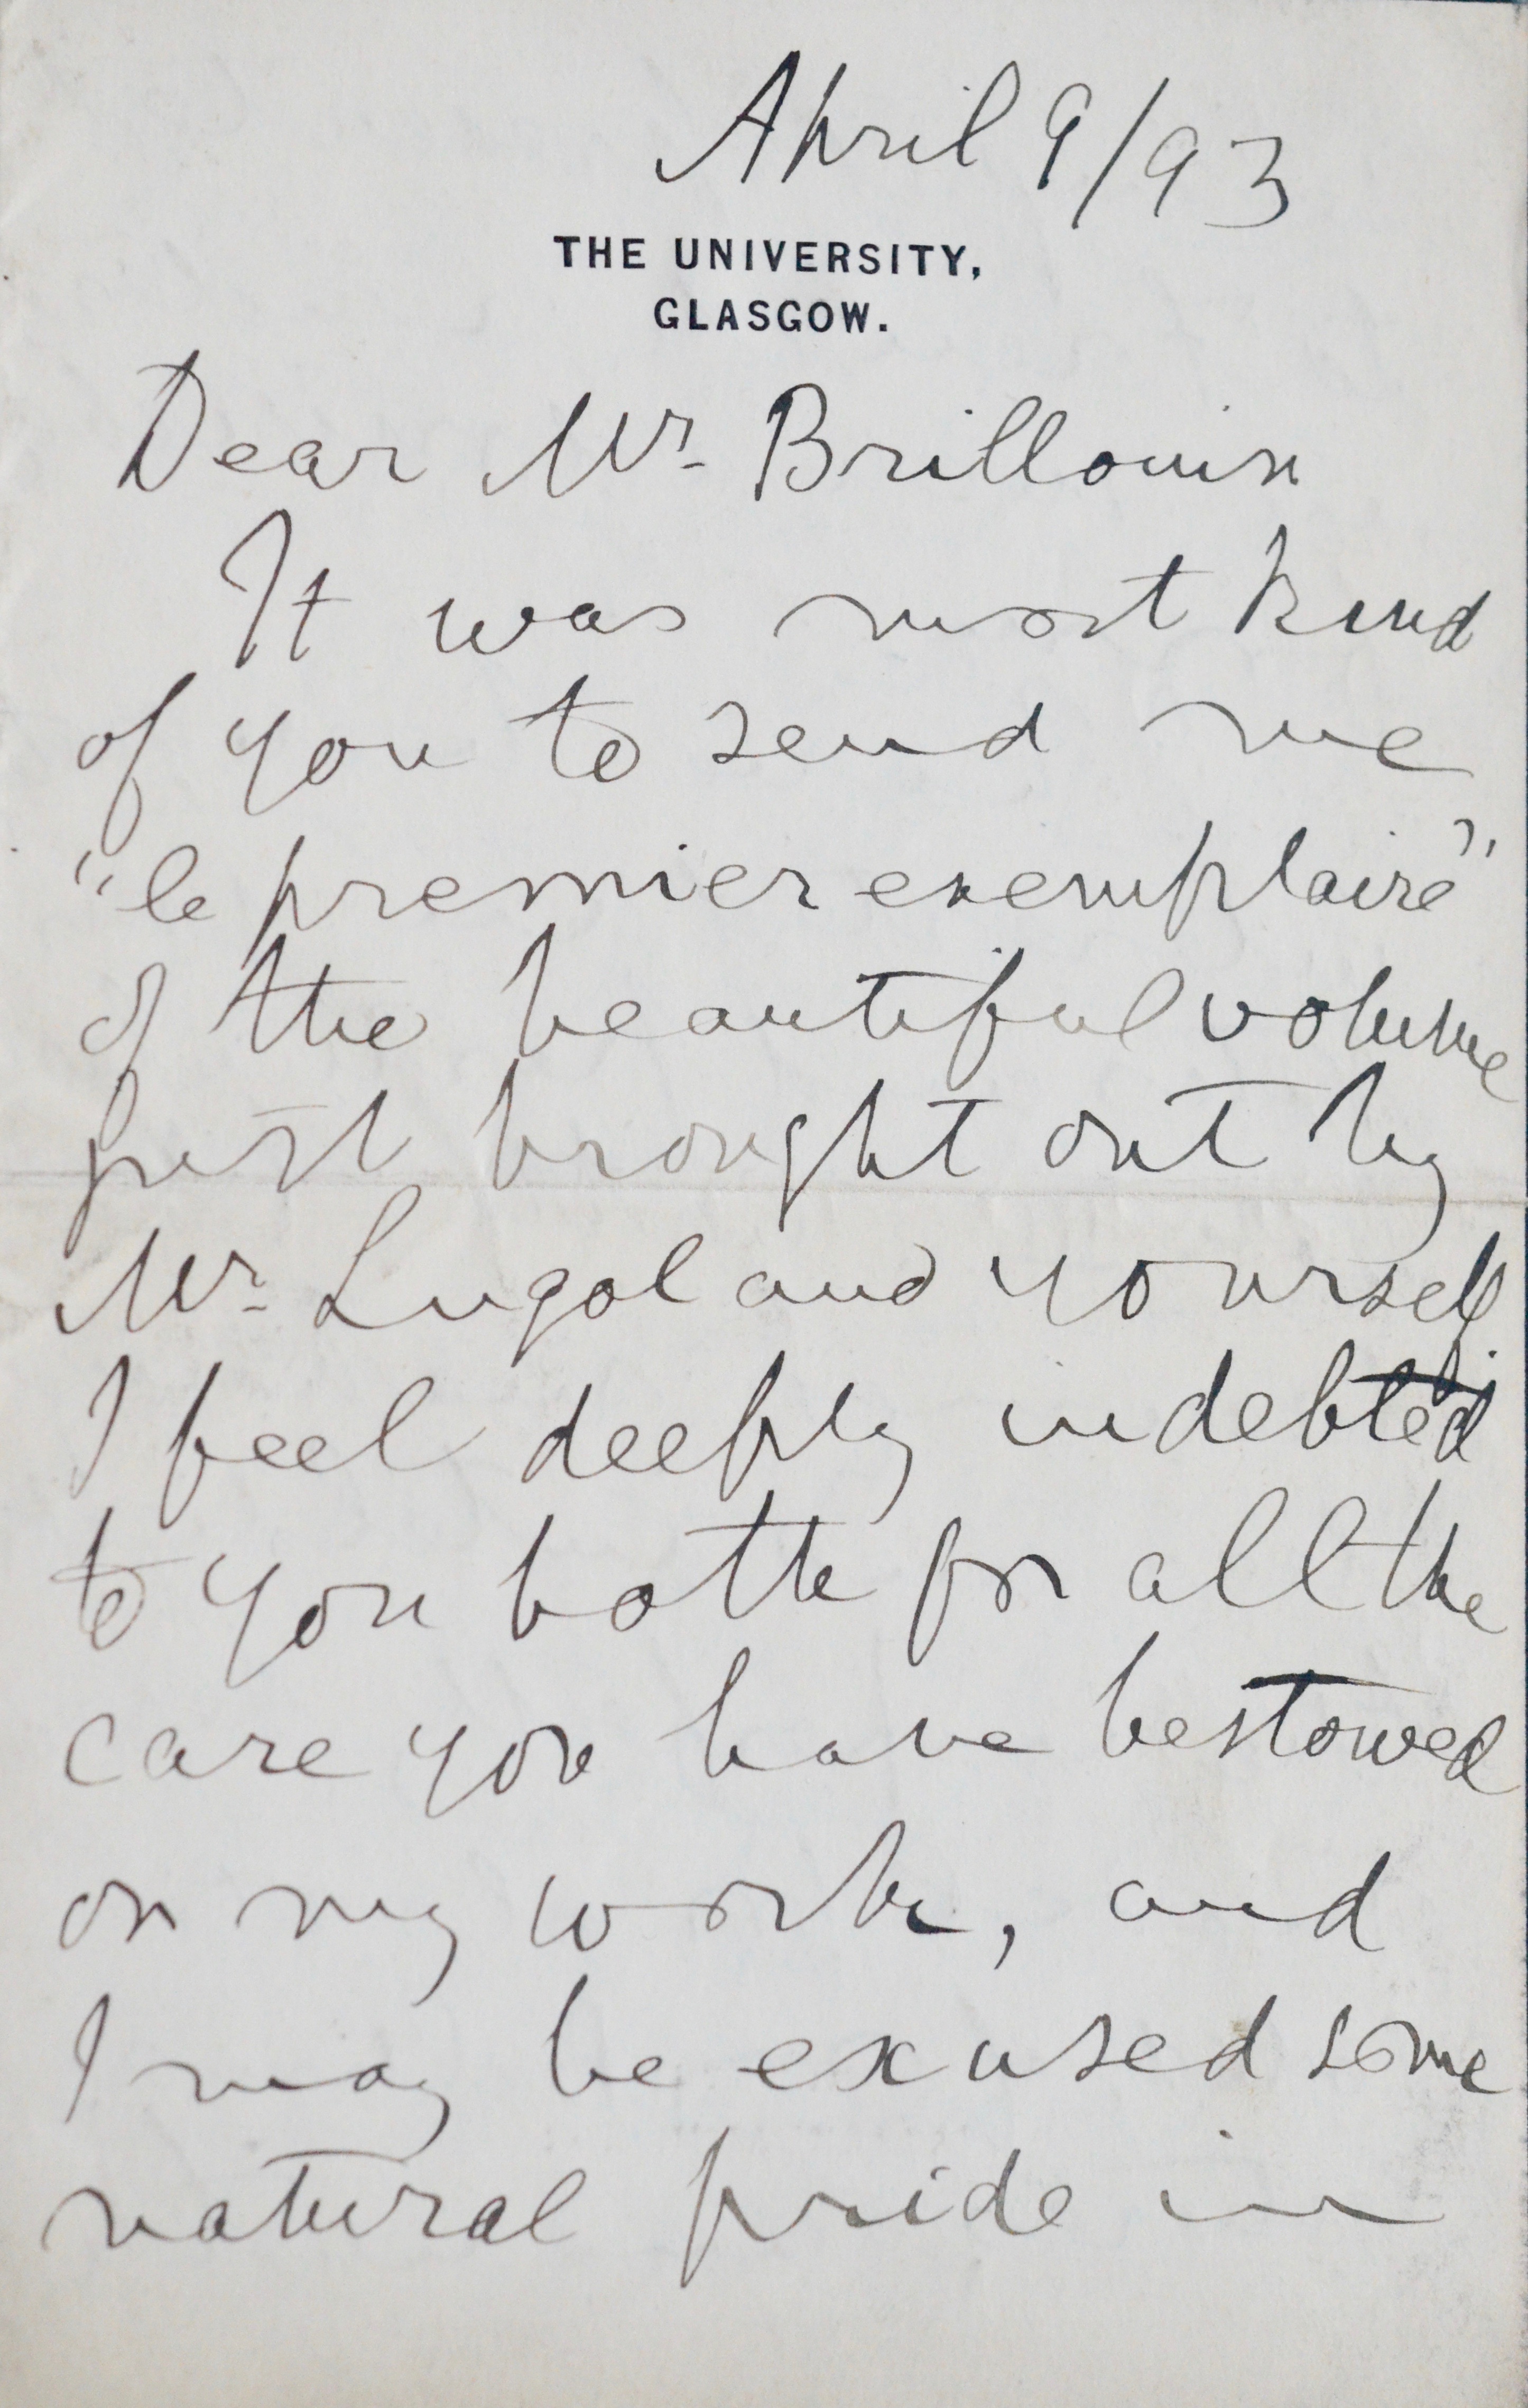 April 9/93
THE UNIVERSITY,
GLASGOW.
Dear Mr. Brillouin
It was most kind
of you to send me
"le premier exemplaire"
of the beautiful volume
just brought out by
Mr. Lugol and yourself.
I feel deeply indebted
to you both for all the
care you have bestowed
on my work, and
I may be excused some
natural pride in